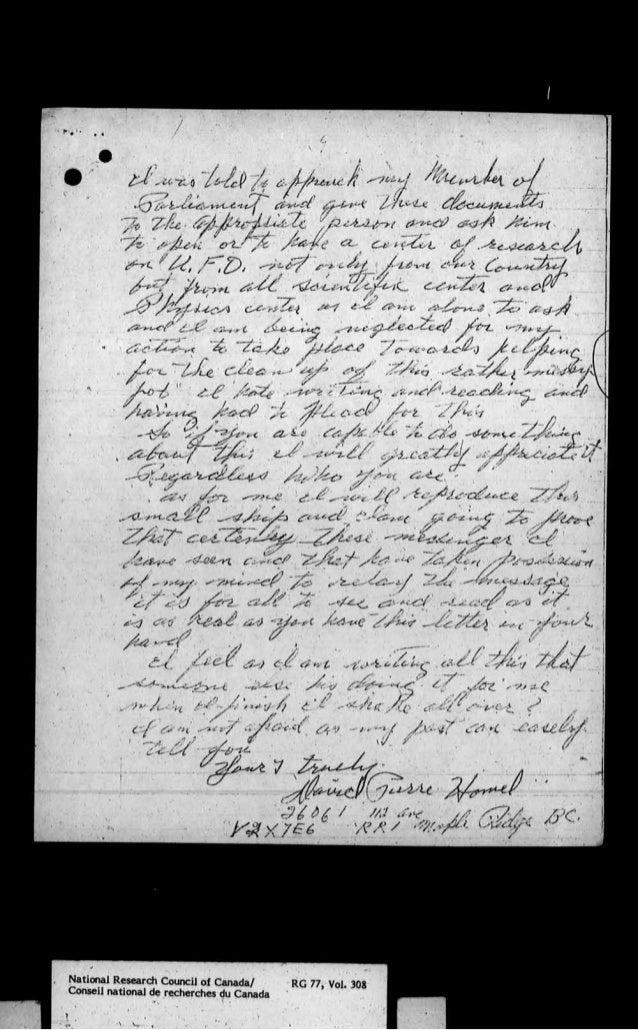 I was told to approuch my Member of
Parliament and give these documents
to the appropriate person and ask him
to open or to have a center of research
on U.F.O. not only from our Country
but from all scientific center and
Physics center as I am alone to ask
and I am being neglected for my
action to take place Towards helping
for the clean up of this rather
pot" I hate writing and reading and
having had to plead for this
So if you are capable to do something
about this I will greatly appreciate it
Regardless who you are.
as for me I will reproduce this
small ship and I am going to prove
that certenley these messenger I
have seen and that have taken possession
of my mind to relay the message
it is for all to see and read as it
is as real as you have this letter in your
hand
I feel as I am writing all this that
someone else his doing it for me
when I finish I shake all over?
I am not afraid as my past can easely
tell you
Your's truely.
David Pierre Howel
26061 112 ave
V2X7E6 RR1 Maple Ridge BC.
National Research Council of Canada/ RG 77, Vol. 308
Conseil national de recherches du Canada